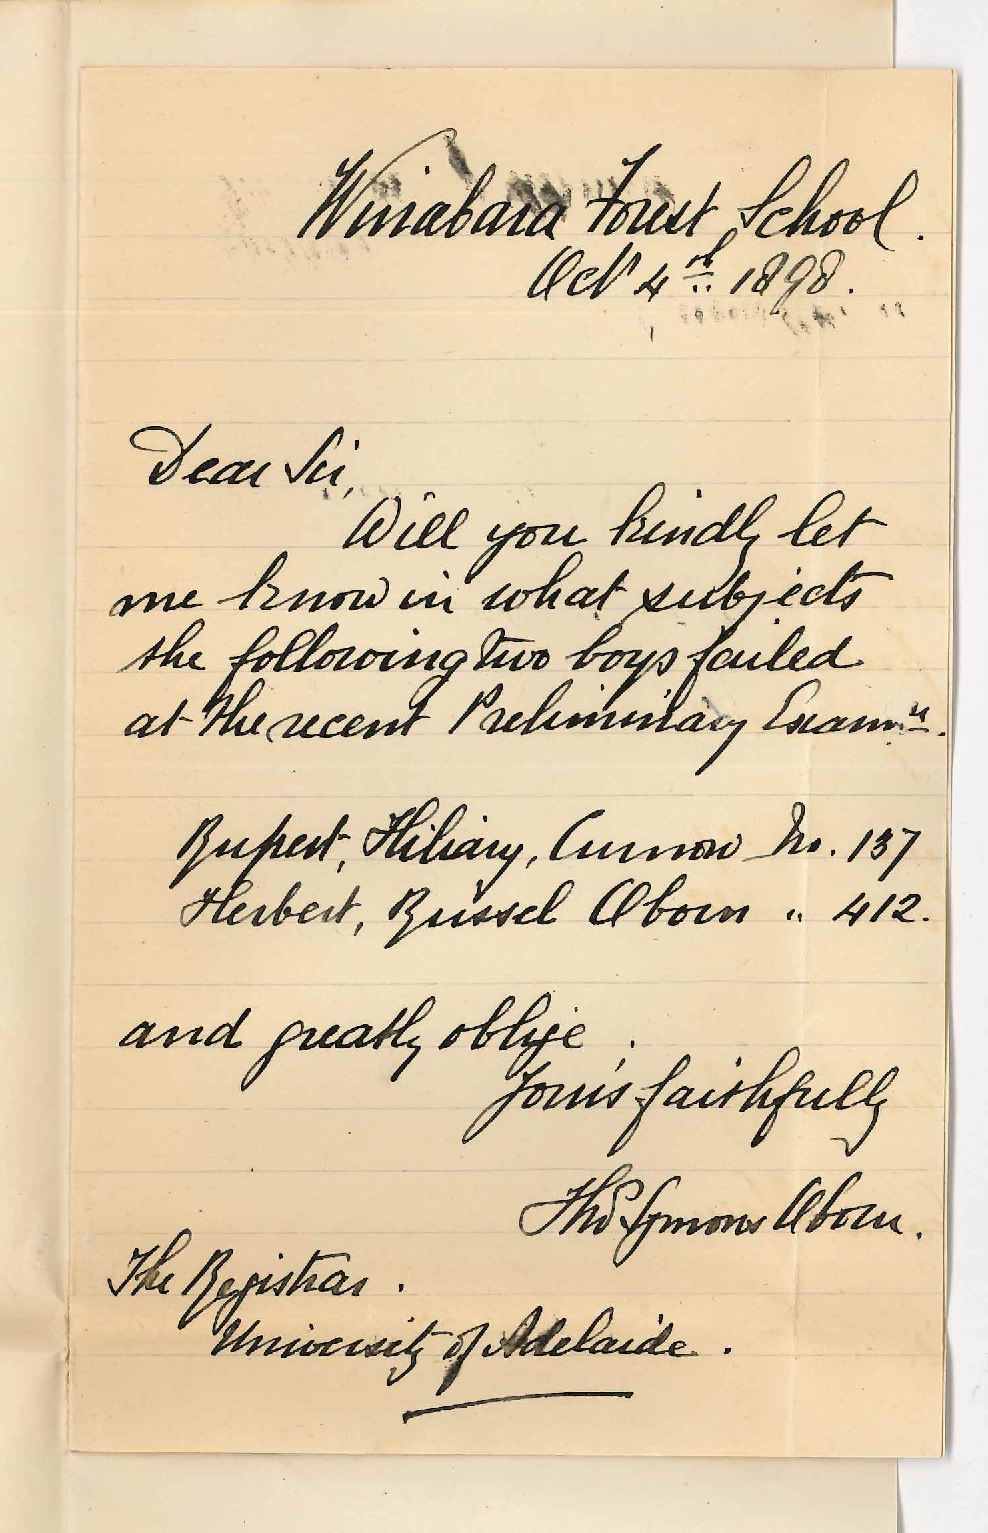 Wirrabara Forest School.
Oct 4th 1898.
Dear Sir,
Will you kindly let
me know in what subjects
the following two boys failed
at the recent Preliminary Examn.
Rupert, Hiliary, Curnow No. 137
Herbert, Russel Oborn " 412.
and greatly oblige,
Yours faithfully
Thos. Symons Oborn.
The Registrar.
University of Adelaide.